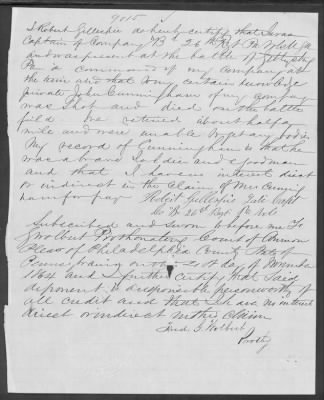 9015
I Robert Gillespie do hereby certify that I was
Captain of Company B 26th Regt Pa Vols
and was present at the battle of Gettysburg
Pa in command of my company at
the time and that to my certain knowledge
private John Cunningham of my company
was Shot and died on the battle
field we retired about half a
mile and were unable to get any bodies
My record of Cunningham is that he
was a brave Soldier and a good man
and that I have no interest direct
or indirect in the Claim of Mrs Cunning
ham for pay Robert Gillespie Late Capt
Co B 26th Regt Pa Vols
Subscribed and Sworn to before me F
G Wolbert Prothonotary Court of Common
Pleas of Philadelphia County State of
Penna day of November
1864 and I further certify that Said
deponent is a responsible person worthy of
all credit and that I have no interest
direct or indirect in this Claim
Fred G Wolbert
Prothy